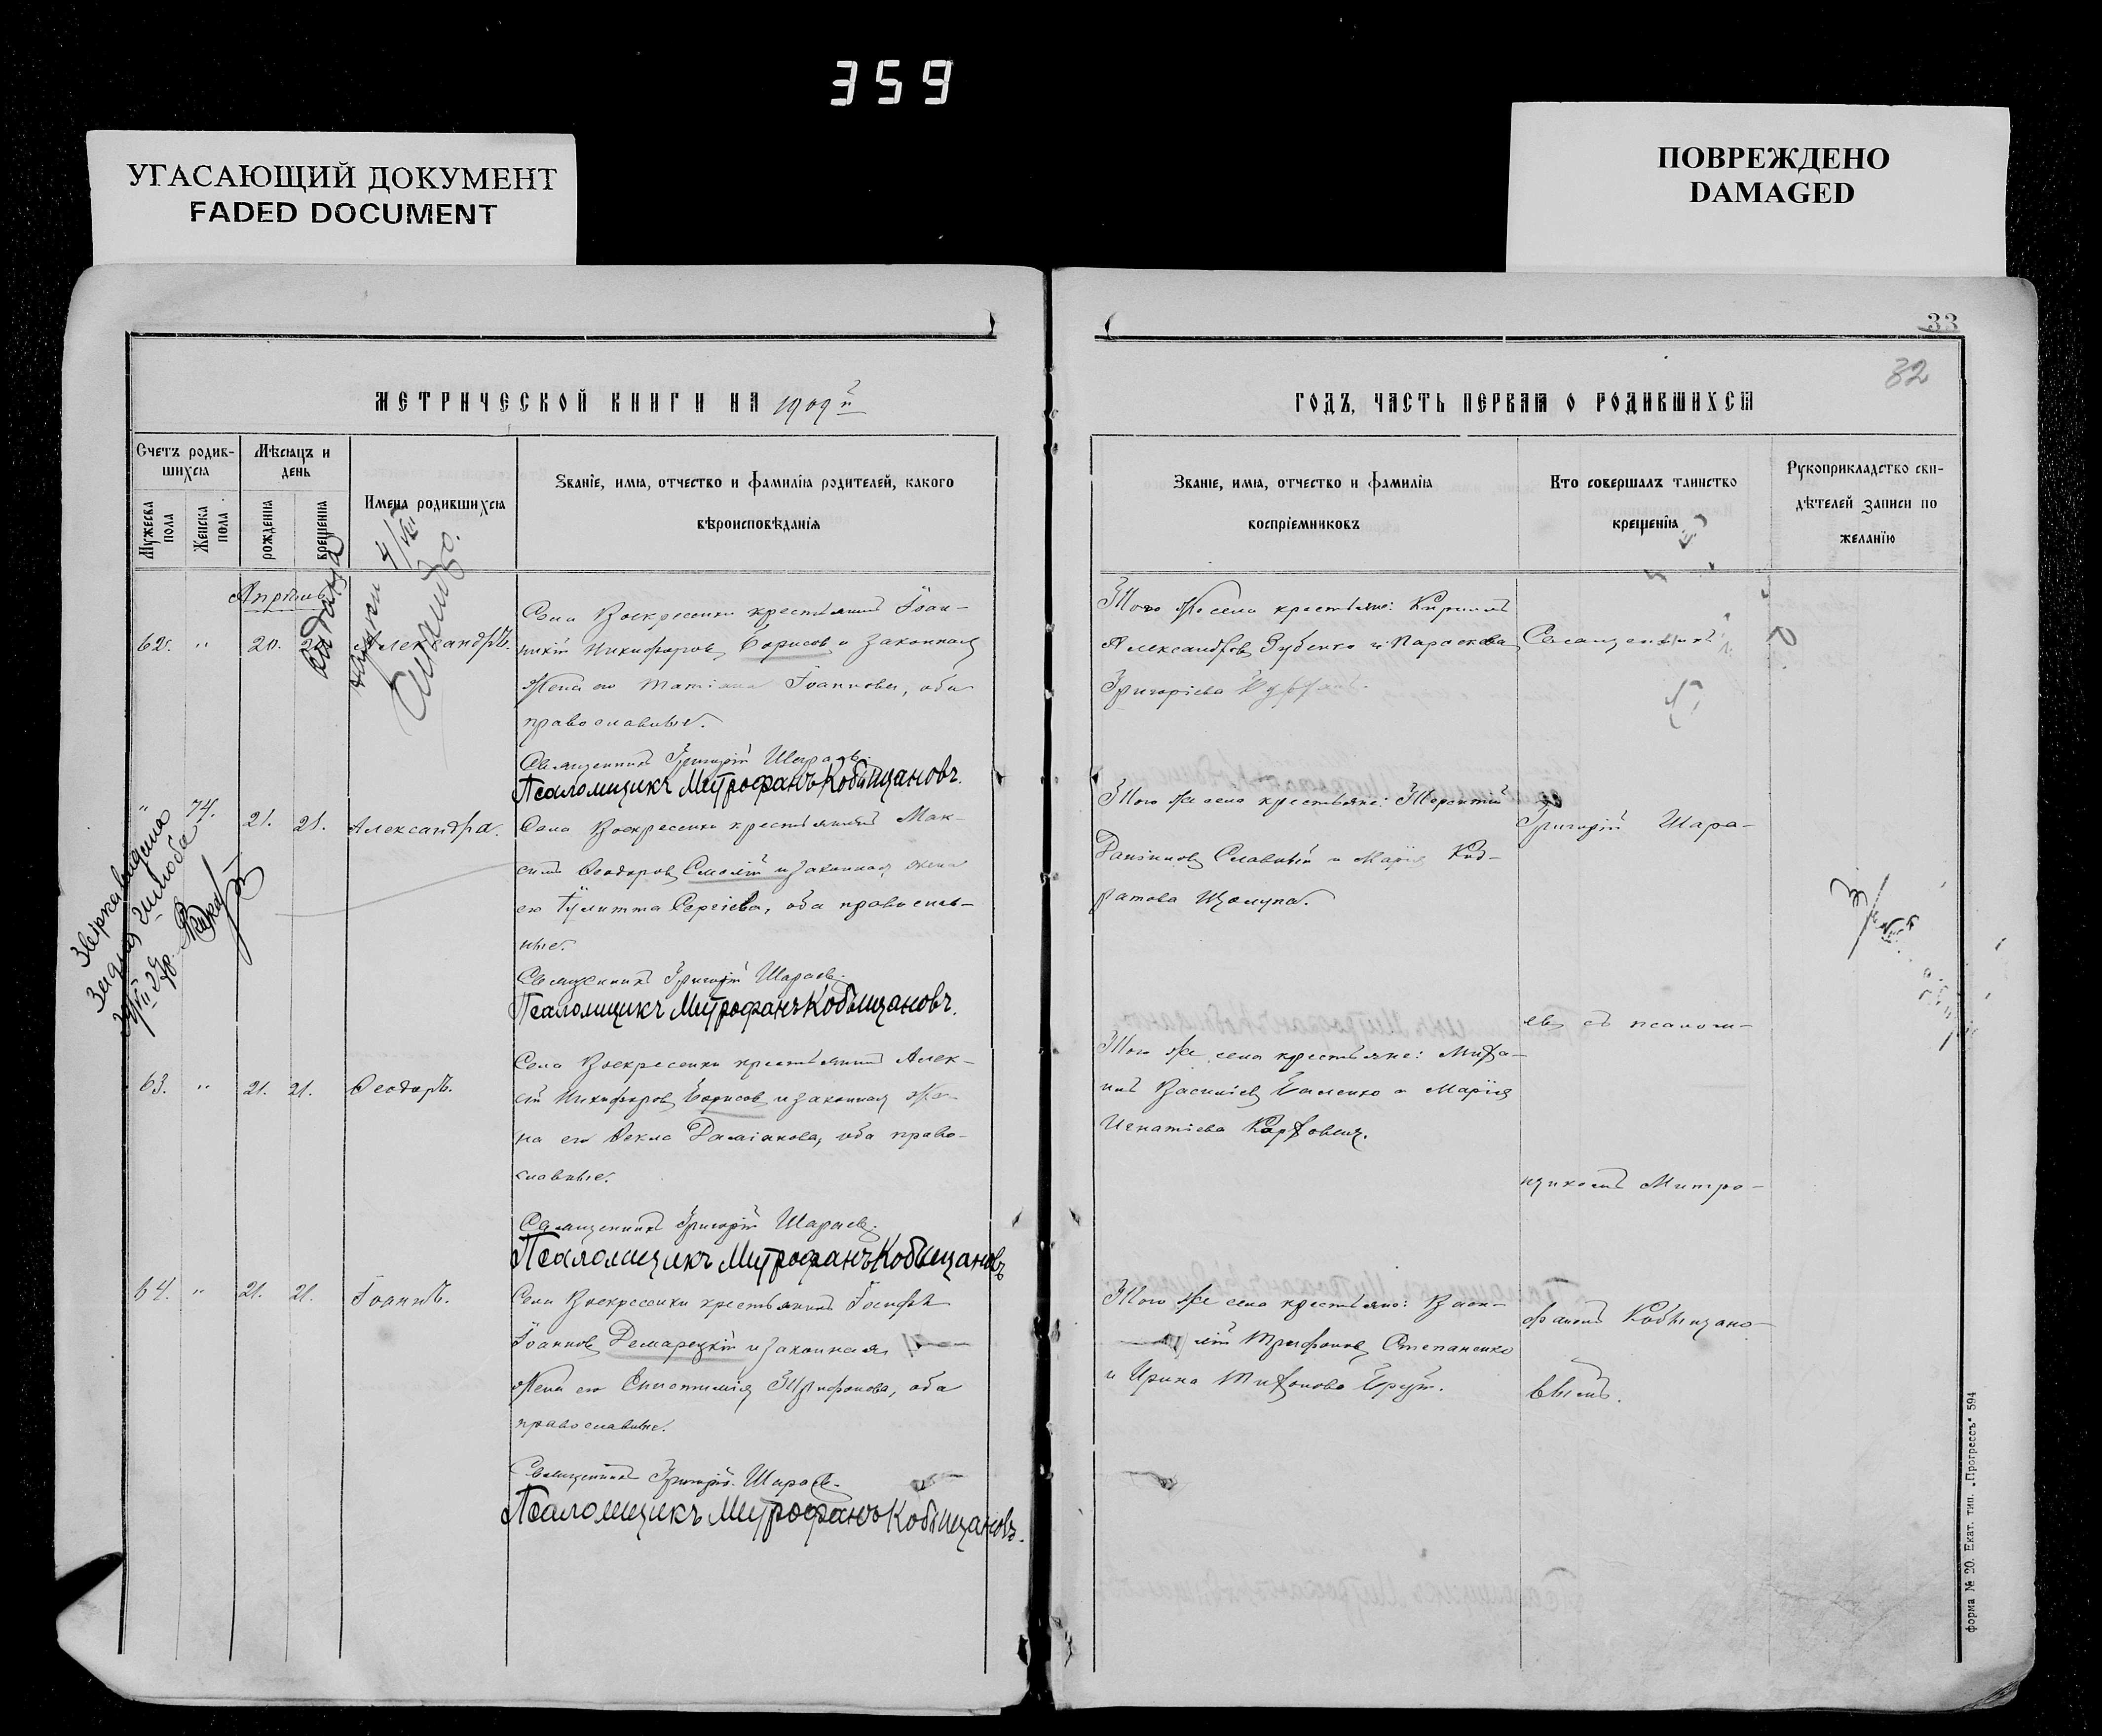 359
УГАСАЮЩИЙ ДОКУМЕНТ
FADED DOCUMENT
ПОВРЕЖДЕНО
DAMAGED
33
32
МЕТРИЧЕСКОЙ КНИГИ НА 1909й
ГОДЪ, ЧАСТЬ ПЕРВАЯ О РОДИВШИХСЯ
Счетъ родив-
шихся
Мужеска пола
Женска пола
Мѣсяцъ и
день
рожденія
крещенія
Имена родившихся
Званіе, имя, отчество и фамилія родителей, какого
вѣроисповѣданія
Званіе, имя, отчество и фамилія
воспріемниковъ
Кто совершалъ таинство
крещенія
Рукоприкладство сви-
дѣтелей записи по
желанію
Апрѣль
62. " 20. Александръ.
Села Воскресенки крестьянинъ Іоан-
никій Никифоровъ Борисов и законная
жена его Татіана Іоаннова, оба
православные.
Священникъ Григорій Шараевъ.
Псаломщикъ Митрофанъ Кобыщановъ.
Того же села крестьяне: Кириллъ
Александровъ Зубенко и Параскева
Григоріева
Священникъ
" 74. 21. 21. Александра.
Села Воскресенки крестьянинъ Мак-
симъ Ѳеодоровъ Смолій и законная жена
его Іулитта Сергіева, оба православ-
ные.
Священникъ Григорій Шараевъ.
Псаломщикъ Митрофанъ Кобыщановъ.
Того же села крестьяне: Терентій
Даніиловъ Славный и Марія Код-
ратова Щолупа.
Григорій Шара-
63. " 21. 21. Ѳеодоръ.
Села Воскресенки крестьянинъ Алек-
сій Никифоровъ Борисовъ и законная же-
на его Ѳекла Даміанова, оба право-
славные.
Священникъ Григорій Шараевъ.
Псаломщикъ Митрофанъ Кобыщановъ
евъ съ псалом-
Того же села крестьяне: Миха-
илъ Василіевъ Баленко и Марія
Игнатіева
щикомъ Митро-
64. " 21. 21. Іоаннъ.
Села Воскресенки крестьянинъ Іосифъ
Іоанновъ Демарецкій и законная
жена его Епистимія Трифонова, оба
православные.
Священникъ Григорій Шараевъ.
Псаломщикъ Митрофанъ Кобыщановъ.
Того же села крестьяне: Васи-
лій Трифоновъ Степаненко
и Ирина Тихонова
фаномъ Кобыщано-
вымъ.
форма № 20. Екат. тип. „Прогрессъ“ 594